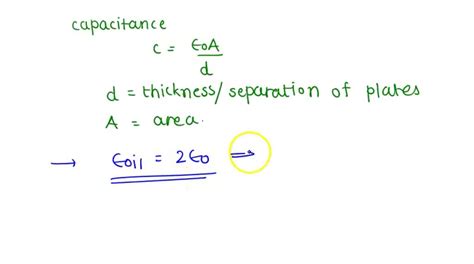 capacitance
c = ϵ0A/d
d = thickness/separation of plates
A = area.
→ ϵoil = 2ϵ0 ⇒